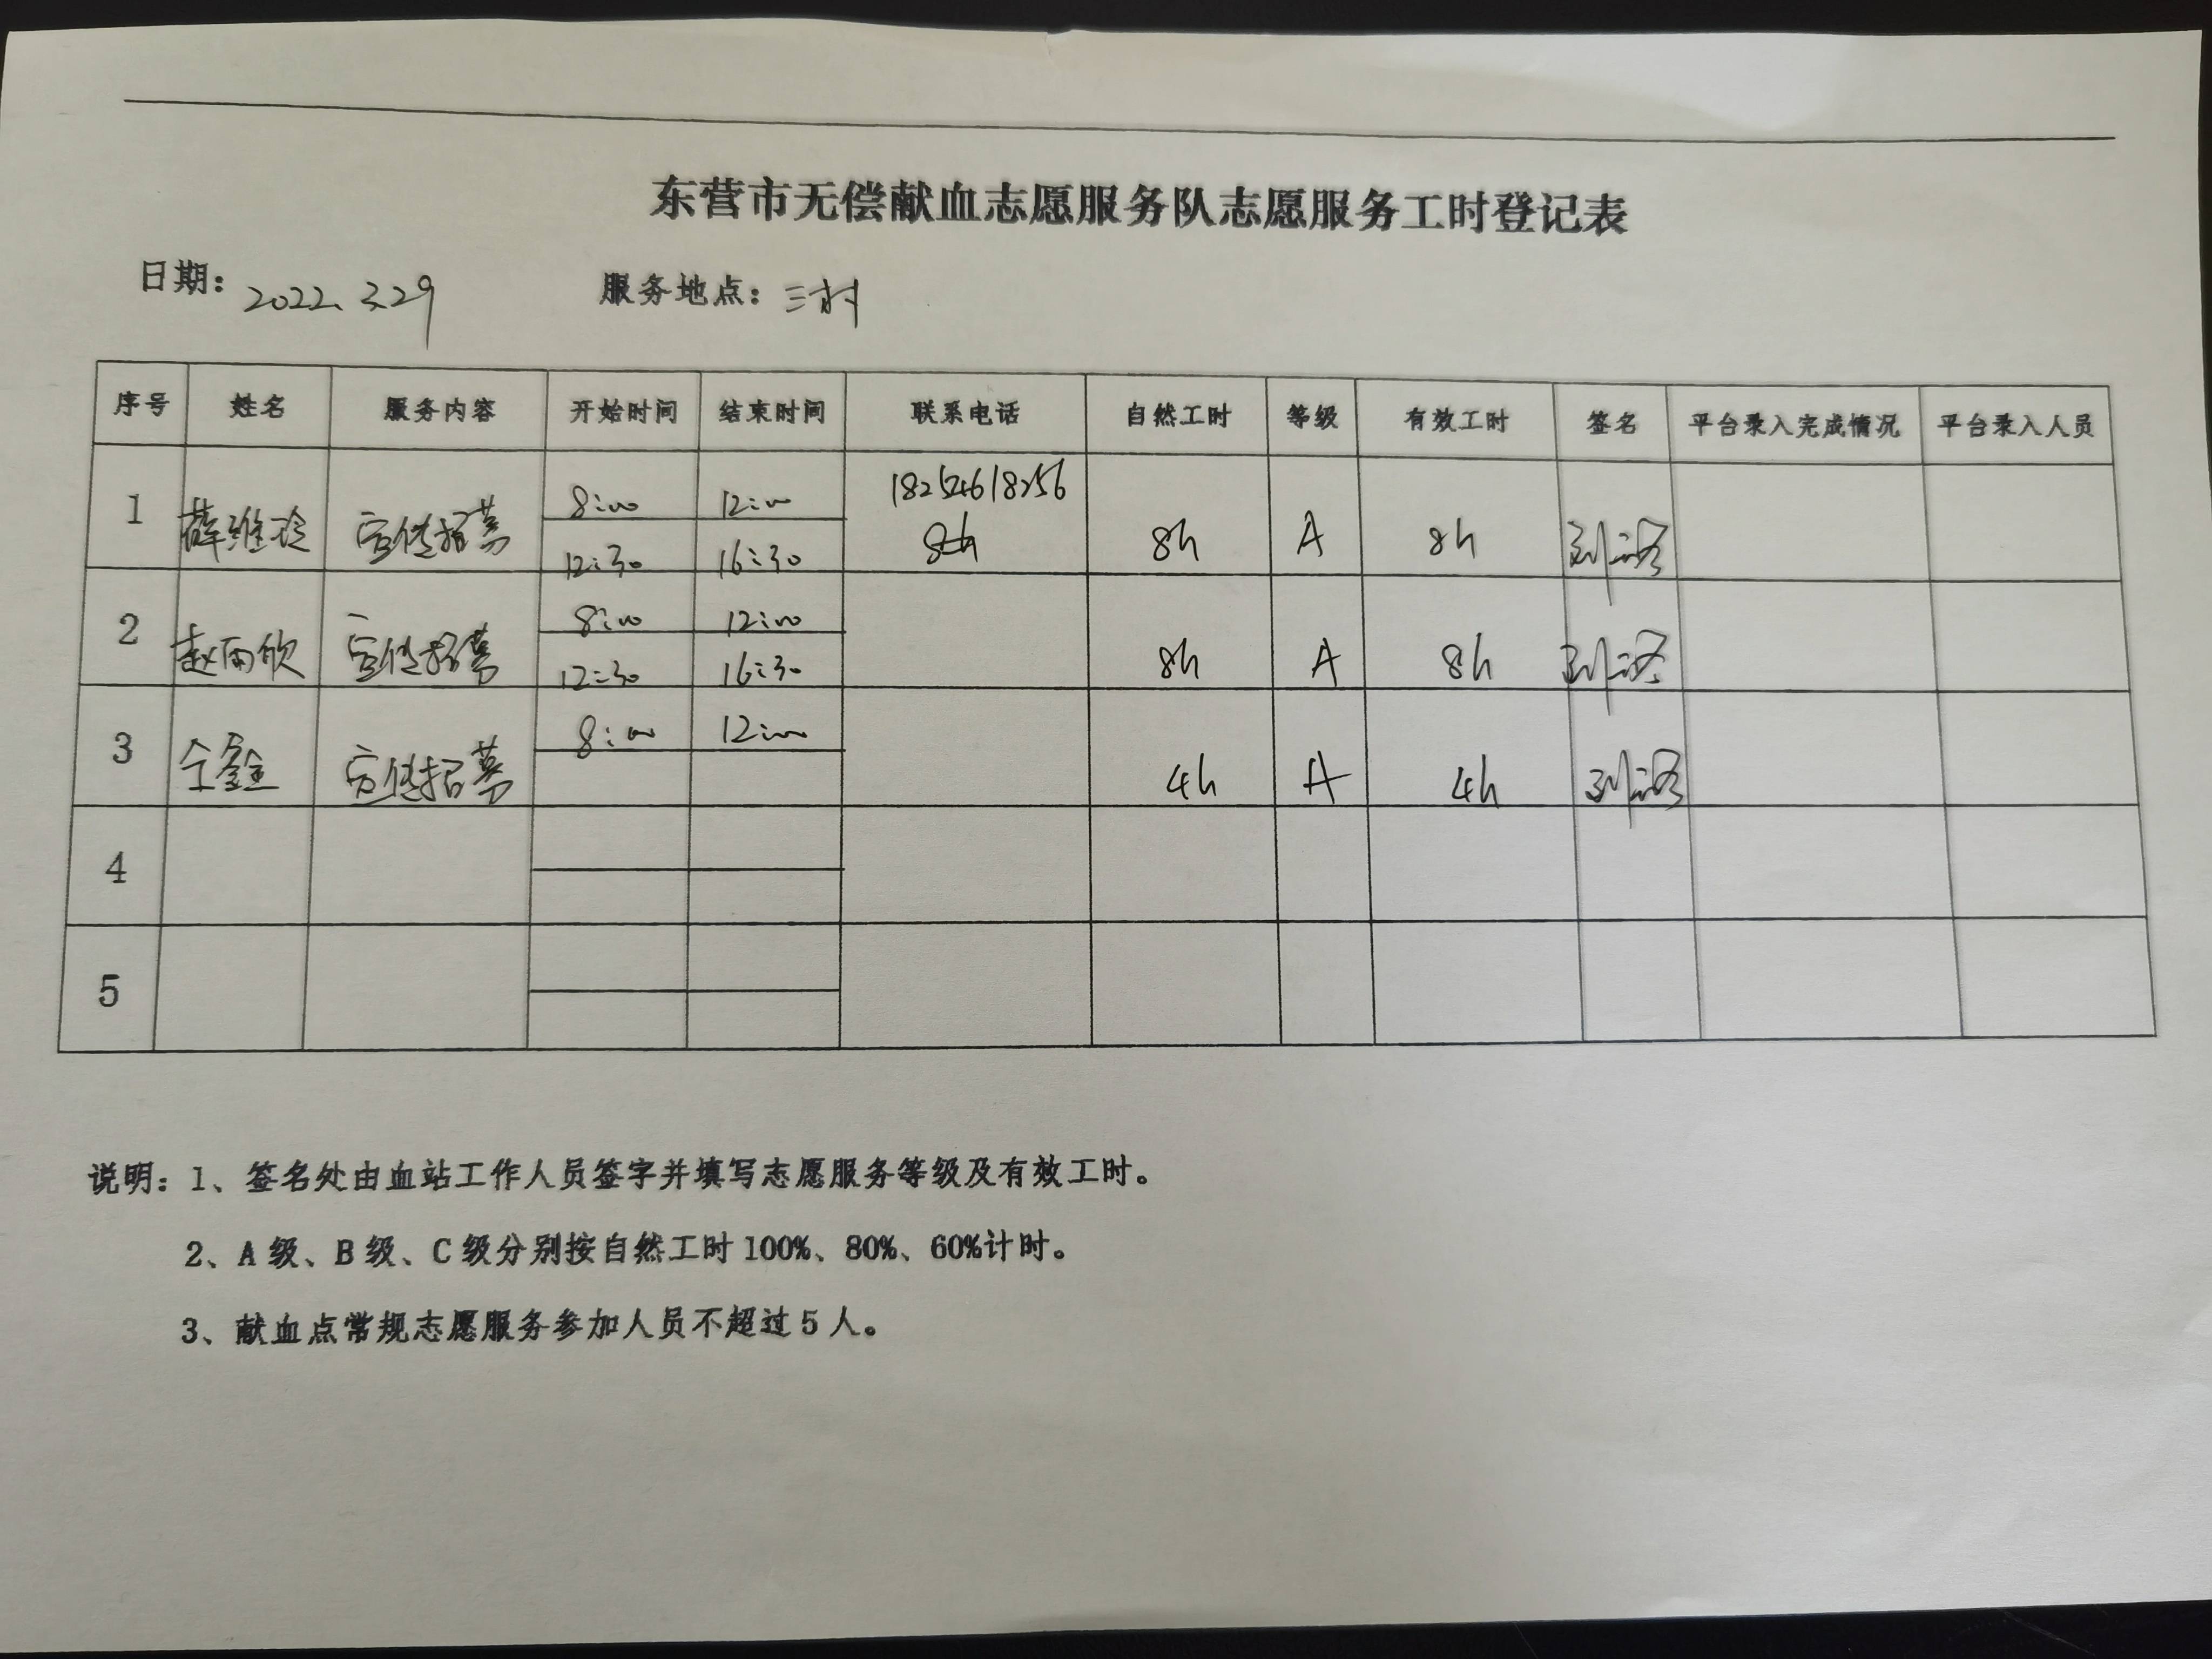 东营市无偿献血志愿服务队志愿服务工时登记表
日期: 2022.3.29 服务地点: 三村
序号 姓名 服务内容 开始时间 结束时间 联系电话 自然工时 等级 有效工时 签名 平台录入完成情况 平台录入人员
18254618256
8:00 12:00
1 薛维玲 宣传招募 8h A 8h
12:30 16:30
8:00 12:00
2 赵雨欣 宣传招募 8h A 8h
12:30 16:30
8:00 12:00
3 仝鑫 宣传招募 4h A 4h
4
5
说明: 1、签名处由血站工作人员签字并填写志愿服务等级及有效工时。
2、A级、B级、C级分别按自然工时100%、80%、60%计时。
3、献血点常规志愿服务参加人员不超过5人。